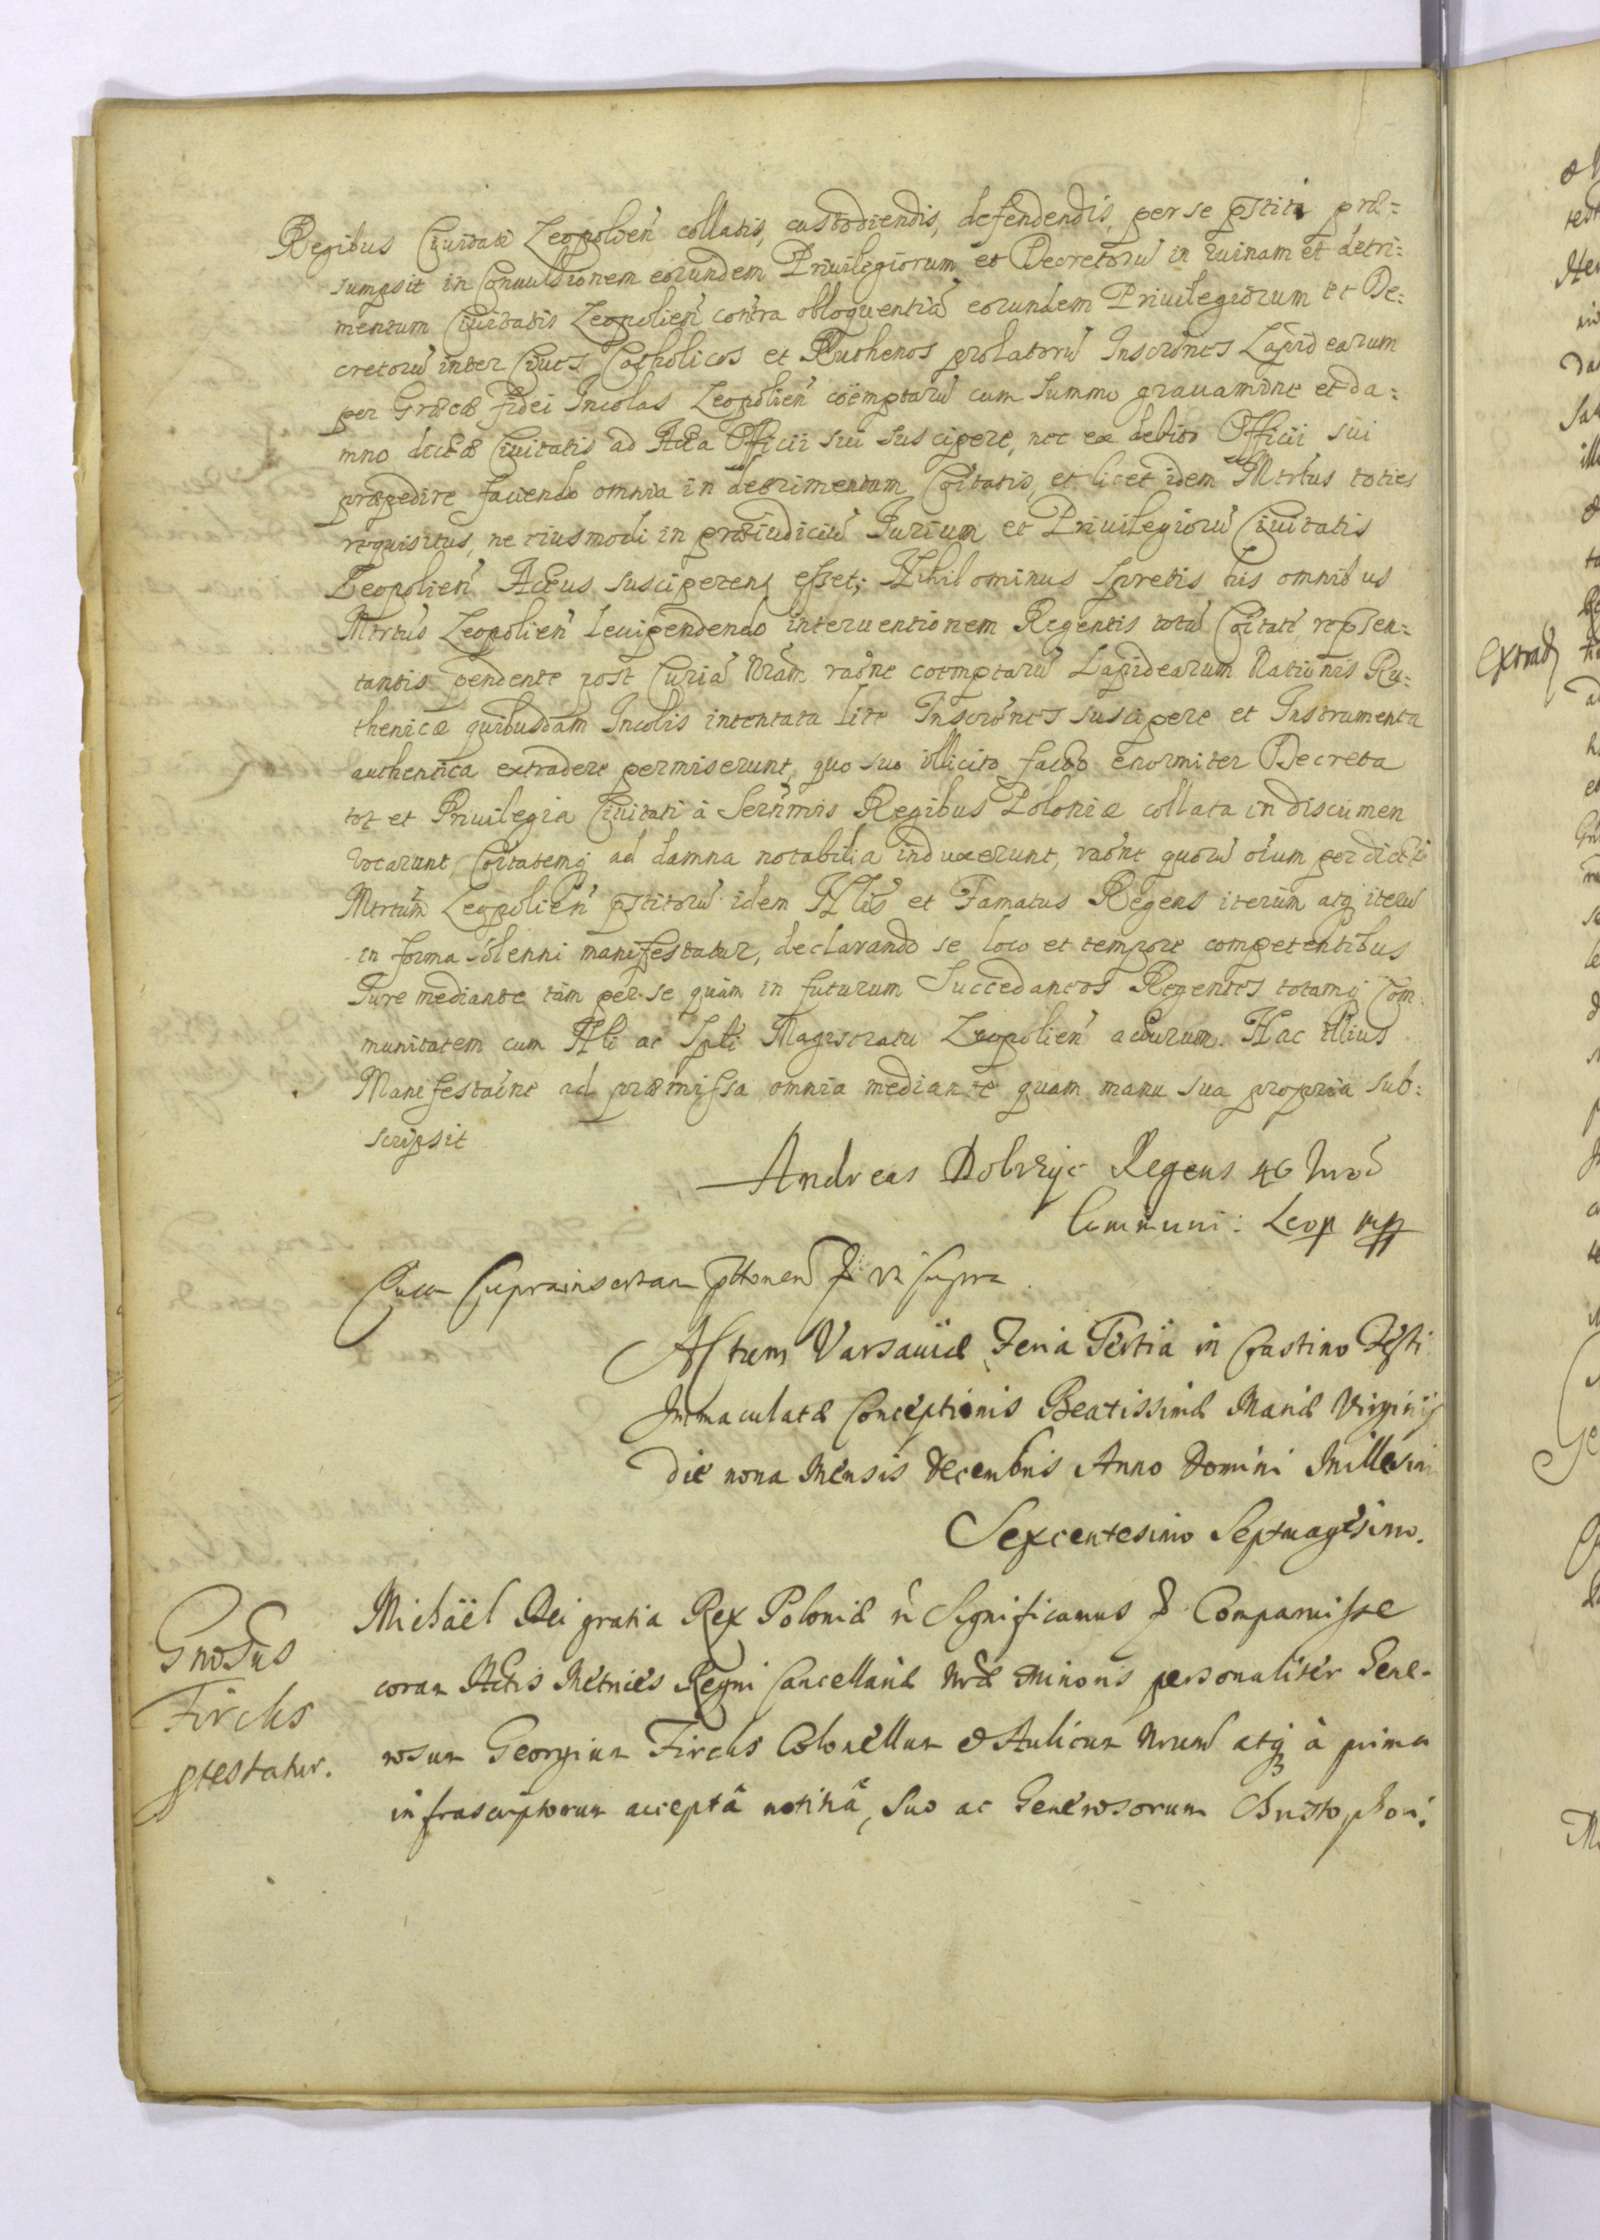 Regibus Civitati Leopolien̄ collatis, custodiendis, defendendis, per se pstiti præ=
sumpsit in Convulsionem eorundem Privilegiorum et Decretorū in ruinam et detri=
mentum Civitatis Leopolien̄ contra obloquentiā eorundem Privilegiorum et De=
cretorū inter Cives Catholicos et Ruthenos prolatorū Inscrōnes Lapidearum
per Græcæ fidei Incolas Leopolien̄ coëmptarū cum summo gravamine et da=
mno dictæ Civitatis ad Acta Officii sui suscipere, nec ex debito Officii sui
præpedire faciendo omnia in detrimentum Cōītatis, et licet idem Mrtus toties
requisitus, ne eiusmodi in præiudiciū Iurium et Privilegiorū Civitatis
Leopolien̄ Actus suscipereng esset; Nihilominus spretis his omnibus
Mrtus Leopolien̄ levipendendo interventionem Regentis totū Cōītatē repsen=
tantis pendente post Curiā Nram raōne coemptarū Lapidearum Nationis Ru=
thenicæ quibusdam Incolis intentata lite Inscrōnes suscipere et Instrumenta
authentica extradere permiserunt, quo suo illicito facto enormiter Decreta
tot et Privilegia Civitati à Serēnimis Regibus Poloniæ collata in discrimen
vocarunt, Cōītatemq ad damna notabilia induxerunt, raōne quorū oīum per dictū
Mrtum Leopolien̄ pstitorū idem Nlis et Famatus Regens iterum atq iterū
in forma solenni manifestatur, declarando se loco et tempore competentibus
Iure mediante tàm per se quàm in futurum Succedaneos Regentes totamq Com=
munitatem cum Nli ac Spli Magistratu Leopolien̄ acturum. Hac illius
Manifestaōne ad præmissa omnia mediante quam manu sua propria sub=
scripsit
Andreas Dobrzyc Regens 40 Virō
Communi: Leop mpp
Cuius suprainsertam pttonem & ut supra.
Actum Varsaviæ Feria Tertia in Crastino Festi
Immaculatæ Conceptionis Beatissimæ Mariæ Virginis
die nona Mensis Decembris Anno Domini Millesimo
Sexcentesimo Septuagesimo.
Gnosus
Firchs
ptestatur.
Michaël Dei gratia Rex Poloniæ & Significamus & Comparuisse
coram Actis Metrices Regni Cancellariæ Nræ Minoris personalitèr Gene-
rosum Georgium Firchs Colonellum & Aulicum Nrum atq à prima
infrascriptorum acceptâ notitiâ, suo ac Generosorum Christophori